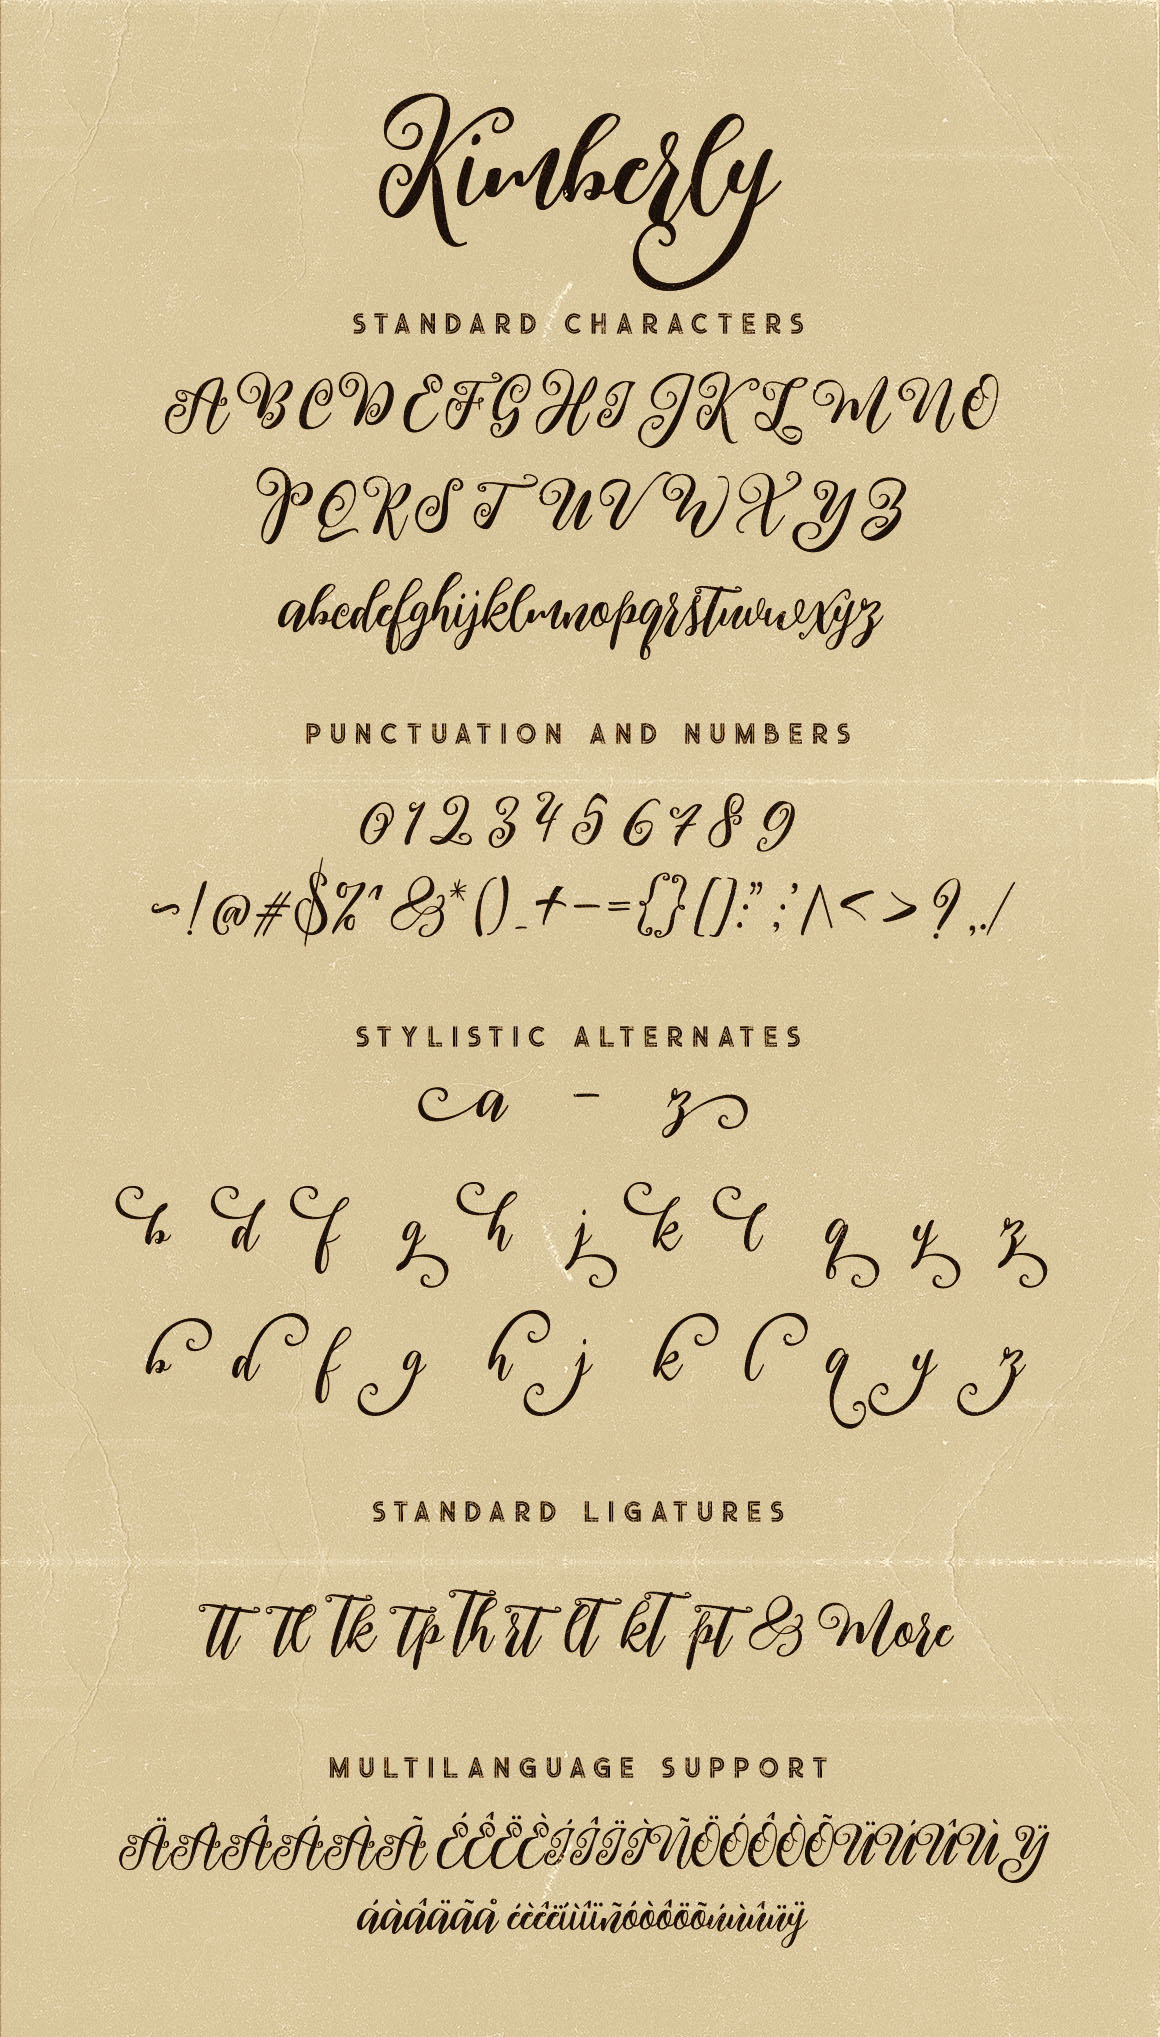 Kimberly
STANDARD CHARACTERS
A B C D E F G H I J K L M N O
P Q R S T U V W X Y Z
abcdefghijklmnopqrstuvwxyz
PUNCTUATION AND NUMBERS
0 1 2 3 4 5 6 7 8 9
~ ! @ # $ % ^ & * ( ) _ + - = { } [ ] : " ; ' / \ < > ? , . /
STYLISTIC ALTERNATES
a - z
b d f g h j k l q y z
b d f g h j k l q y z
STANDARD LIGATURES
tt tl tk tp th rt lt kt pt & More
MULTILANGUAGE SUPPORT
áàâäãå éèêëíìîïñóòôöõúùûüÿ